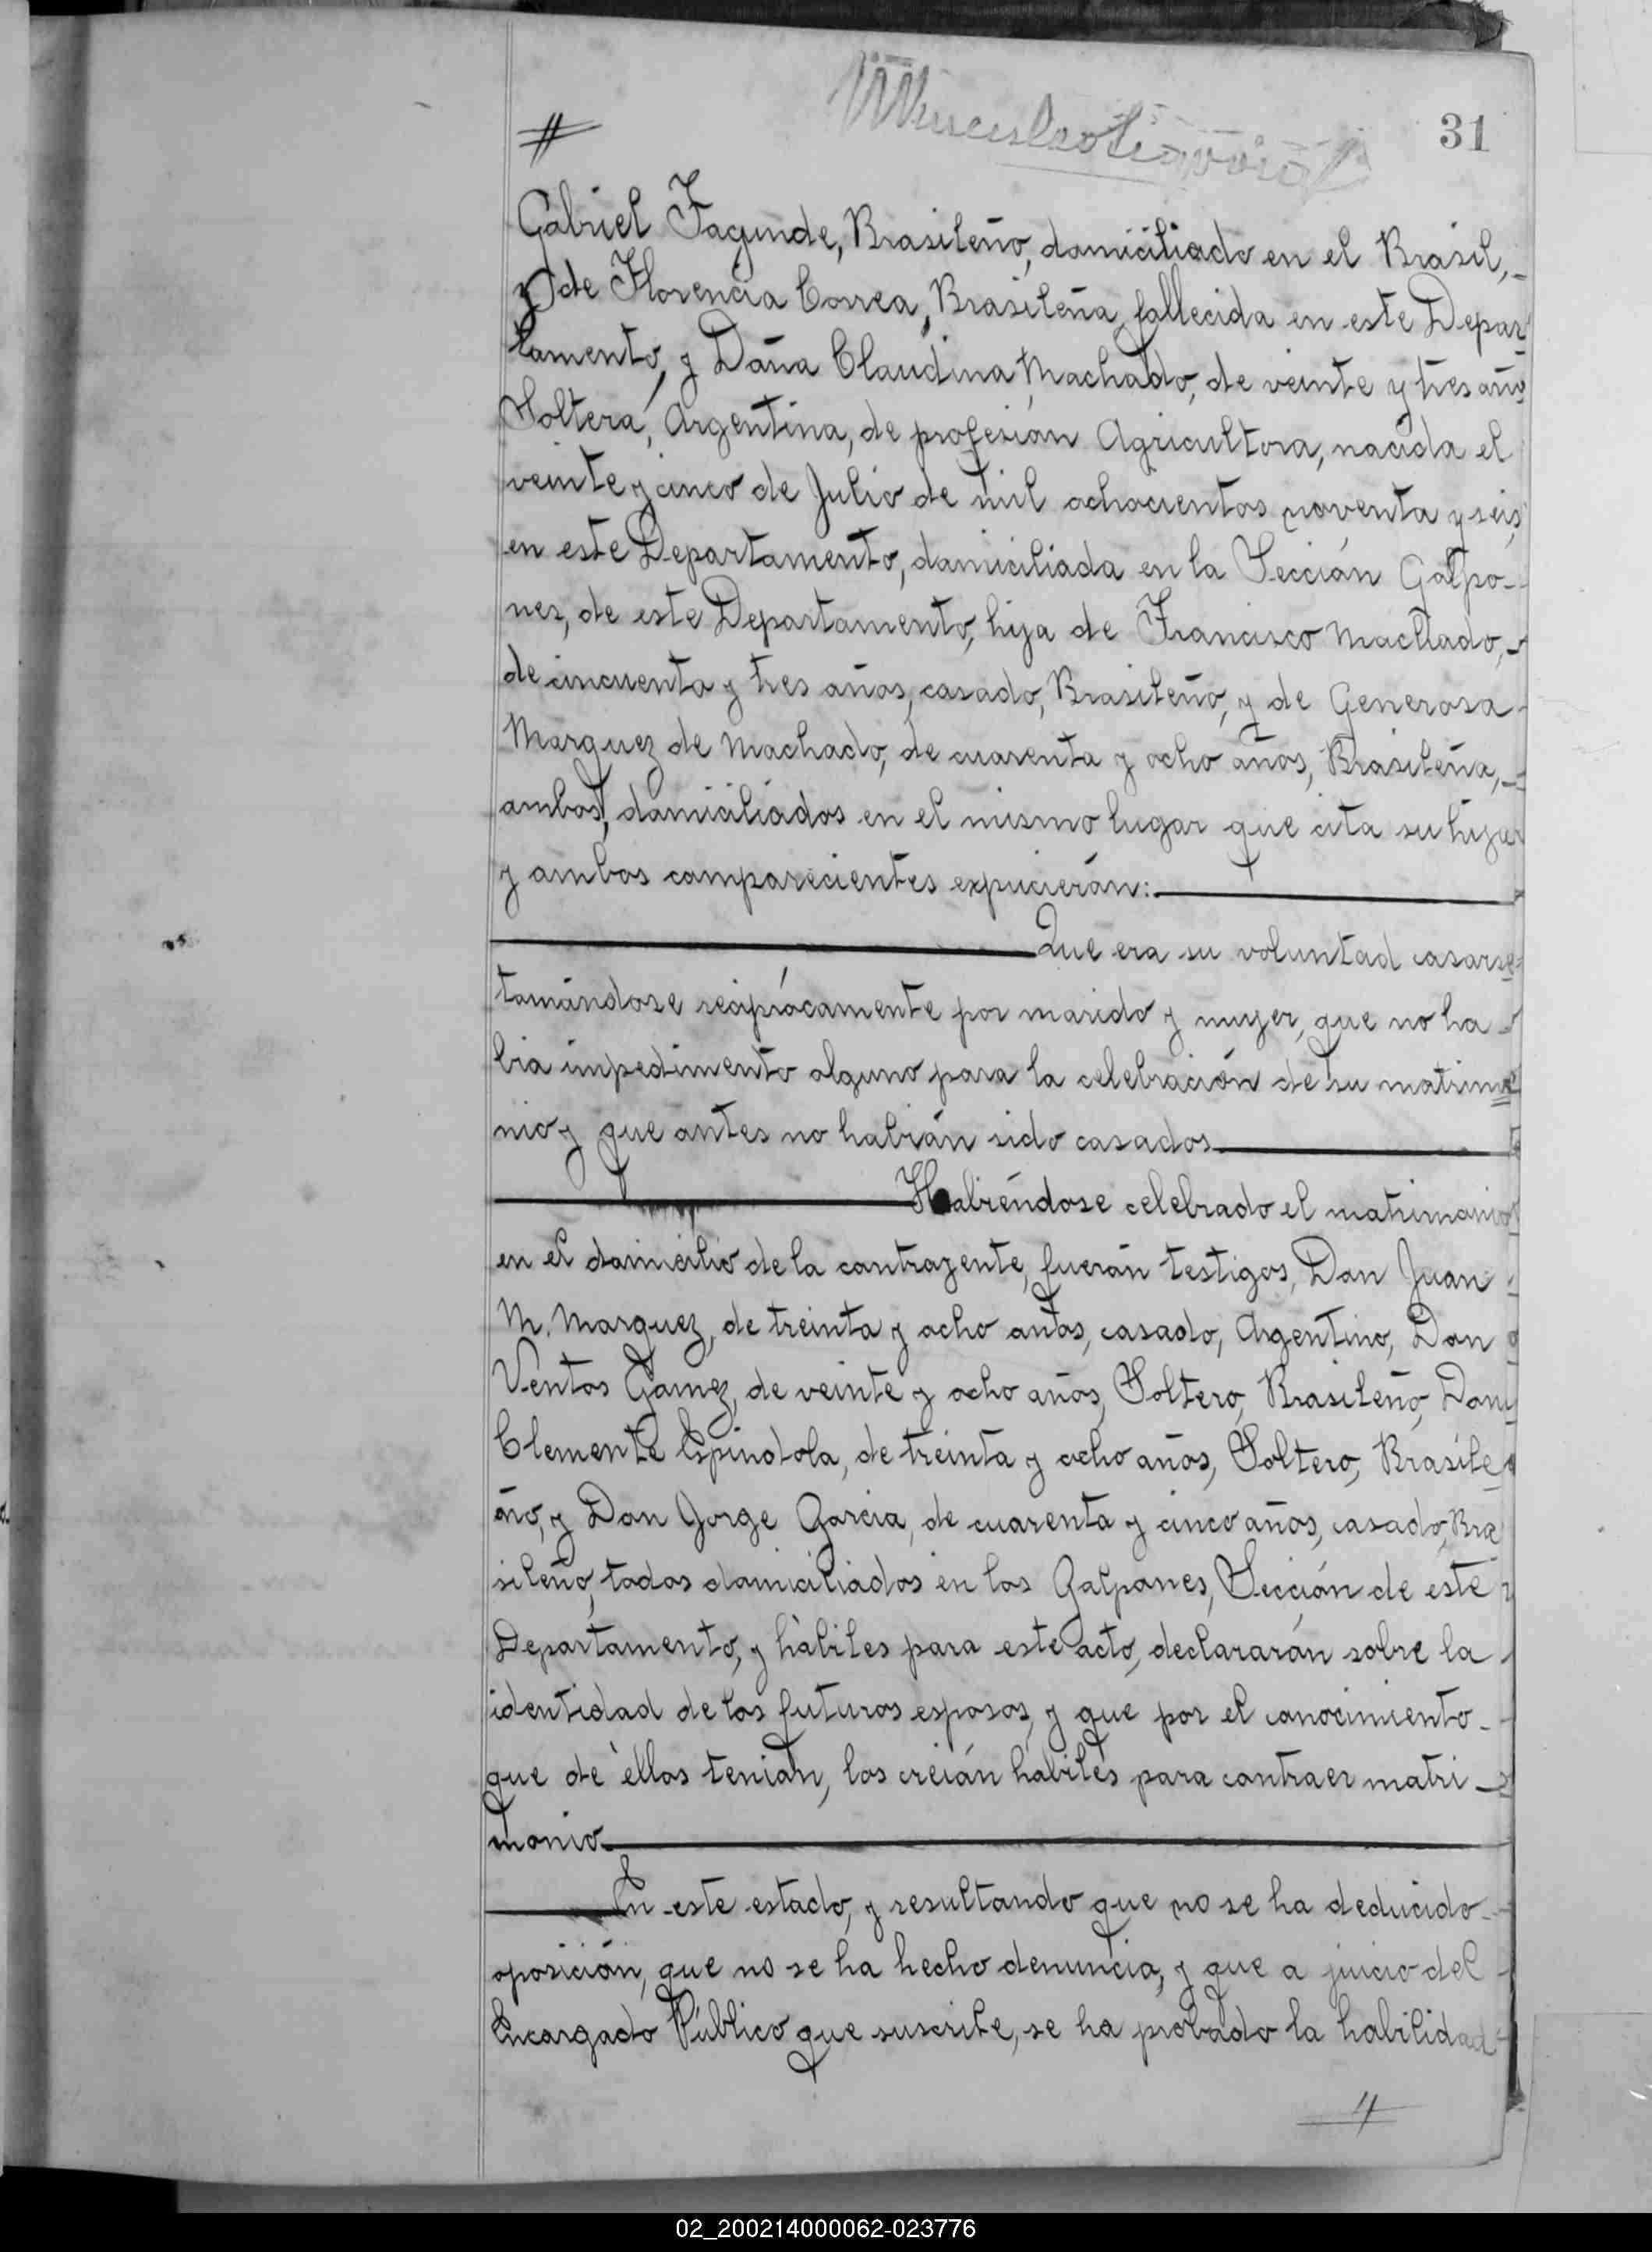 31
Gabriel Fagunde, Brasileño, domiciliado en el Brasil,
y de Florencia Correa, Brasileña, fallecida en este Depar
tamento, y Doña Claudina Machado, de veinte y tres años
Soltera, Argentina, de profesión Agricultora, nacida el
veinte y cinco de Julio de mil ochocientos noventa y seis,
en este Departamento, domiciliada en la Sección Galpo-
nes, de este Departamento, hija de Francisco Machado,
de cincuenta y tres años, casado, Brasileño, y de Generosa
Marquez de Machado, de cuarenta y ocho años, Brasileña,
ambos, domiciliados en el mismo lugar que cita su hija
y ambos comparecientes expucierón:
Que era su voluntad casarse
tomándose recíprocamente por marido y mujer, que no ha
bia impedimento alguno para la celebración de su matrimo
nio y que antes no habián sido casados
Habiéndose celebrado el matrimonio
en el domicilio de la contrayente, fuerón testigos, Don Juan
M. Marquez, de treinta y ocho años, casado, Argentino, Don
Ventos Gamez, de veinte y ocho años, Soltero, Brasileño, Don
Clemente Espindola, de treinta y ocho años, Soltero, Brasile
ño, y Don Jorge Garcia, de cuarenta y cinco años, casado, Bra
sileño, todos domiciliados en los Galpones, Sección de este
Departamento, y hàbiles para este acto, declararón sobre la
identidad de los futuros esposos, y que por el conocimiento
que de èllos tenián, los creián hábiles para contraer matri
monio
En este estado, y resultando que no se ha deducido
oposición, que no se ha hecho denuncia, y que a juicio del
Encargado Público que suscribe, se ha probado la habilidad
02_200214000062-023776